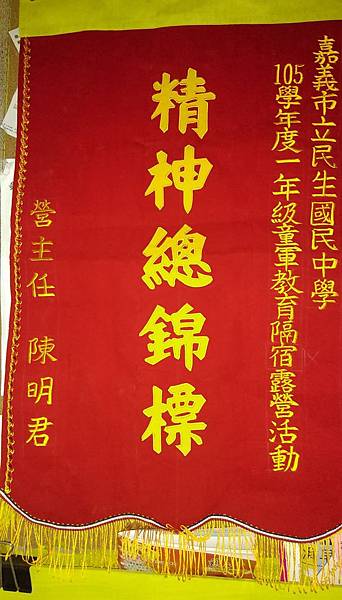 嘉義市立民生國民中學
105學年度一年級童軍教育隔宿露營活動
精神總錦標
營主任 陳明君